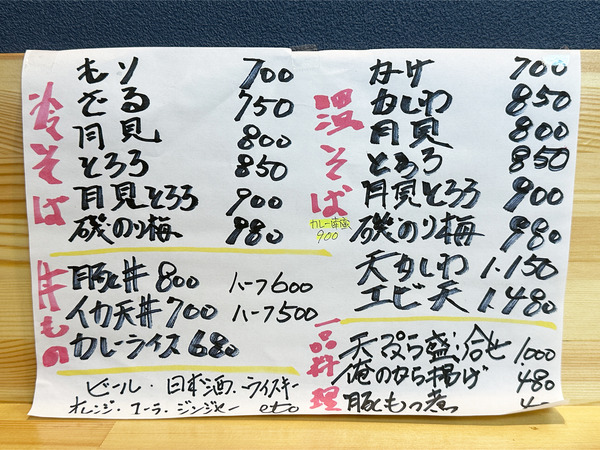 冷そば
もり 700
ざる 750
月見 800
とろろ 850
月見とろろ 900
磯のり梅 980
丼もの
豚と丼 800 ハーフ600
イカ天丼 700 ハーフ500
カレーライス 680
ビール・日本酒・ウイスキー
オレンジ・コーラ・ジンジャー etc
温そば
かけ 700
かしわ 850
月見 800
とろろ 850
月見とろろ 900
カレー
900
磯のり梅 980
天かしわ 1.150
エビ天 1.480
一品料理
天ぷら盛り合せ 1000
俺のから揚げ 480
豚ともつ煮